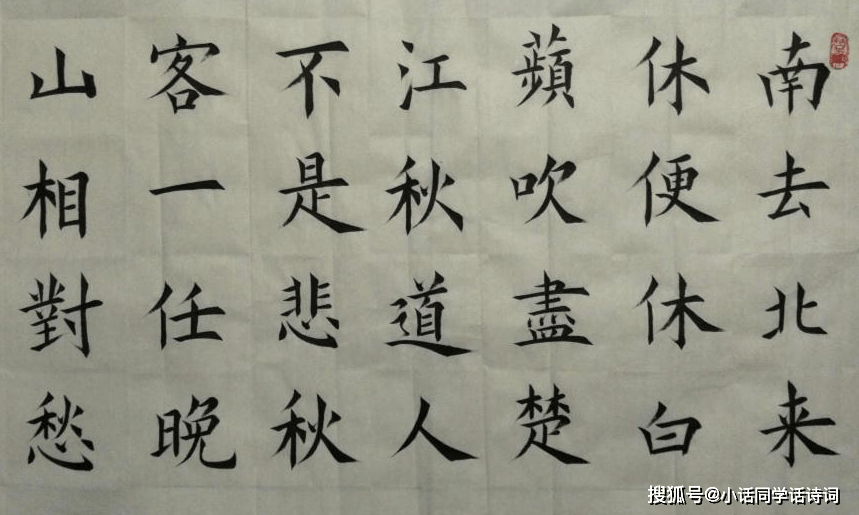 南去北来
休便休白
蘋吹盡楚
江秋道人
不是悲秋
客一任晚
山相對愁
搜狐号@小话同学话诗词